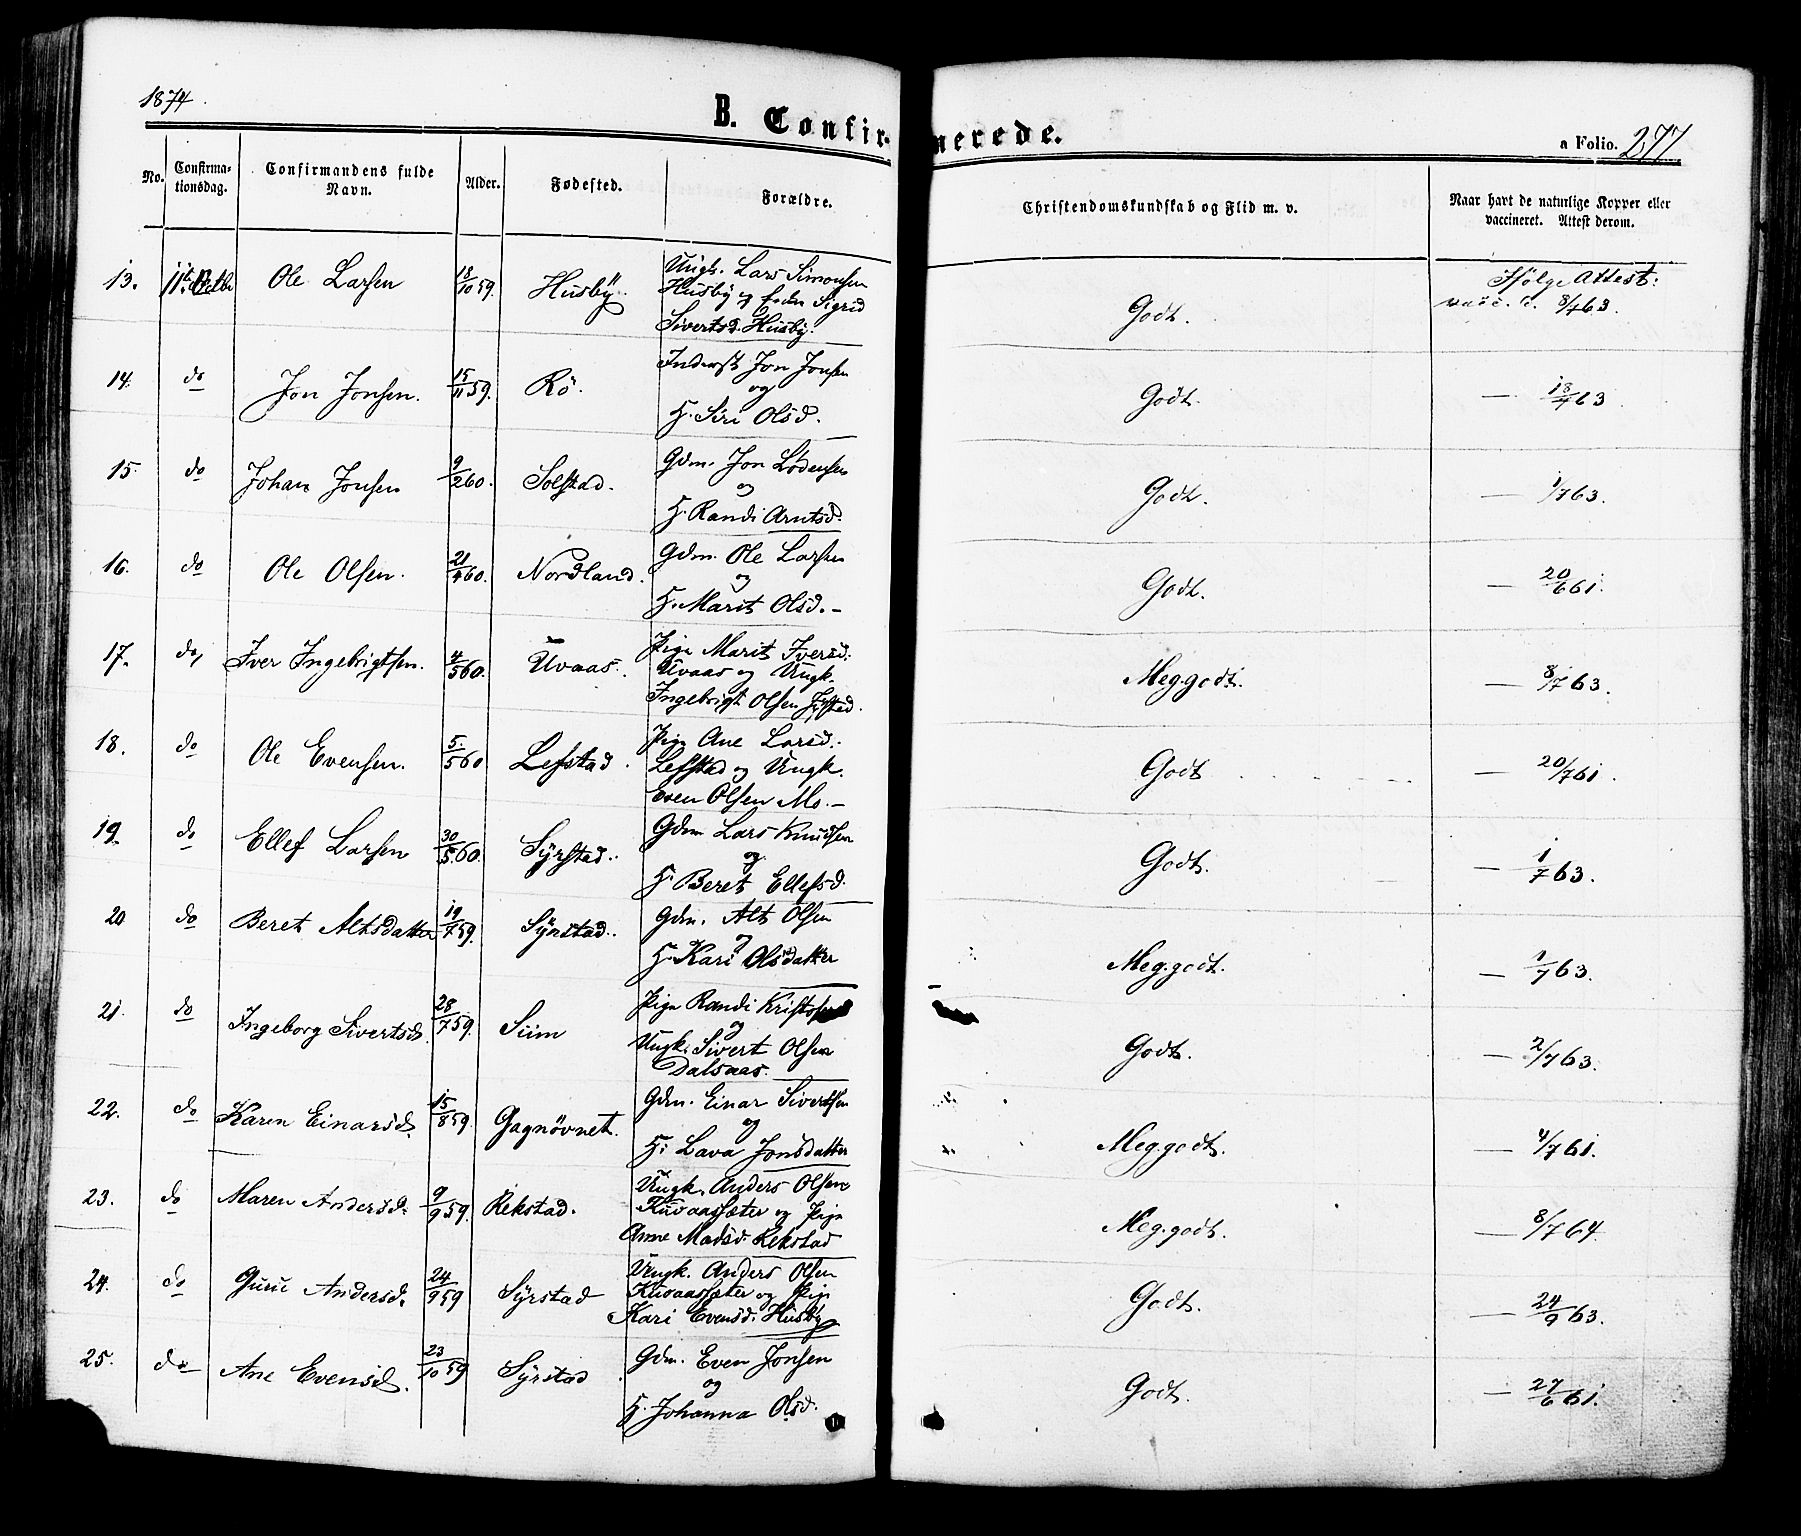 1874.
B. Confirmerede.
a Folio. 277
No. Confirmationsdag. Confirmandens fulde Navn. Alder. Fødested. Forældre. Christendomskundskab og Flid m. v. Naar havt de naturlige Kopper eller vaccineret. Attest derom.
13. 11te Octbr Ole Larsen 18/10 59. Husbÿ. Ungk. Lars Simonsen
Husby og Sigrid
Sivertsd. Husby.
Godt. Ifølge Attest:
vacc. d. 8/7 63.
14. do Jon Jonsen. 15/11 59. Rö. Inderst Jon Jonsen
og
H. Siri Olsd.
Godt. — 18/7 63
15. do Johan Jonsen 9/2 60. Solstad. Gdm. Jon Lödensen
og
H. Randi Arntsd.
Godt. — 1/7 63.
16. do Ole Olsen. 21/4 60. Nordland. Gdm. Ole Larsen
og
H. Marit Olsd. –
Godt. — 20/6 61.
17. do, Iver Ingebrigtsen. 4/5 60. Uvaas. Pige Marit Iversd.
Uvaas og Ungk.
Ingebrigt Olsen
Meg. godt. — 8/7 63.
18. do Ole Evensen. 5/5 60 Lefstad. Pige Ane Larsd.
Lefstad og Ungk.
Even Olsen Mo. –
Godt — 20/7 61.
19. do Ellef Larsen 30/5 60. Sÿrstad. Gdm Lars Knudsen
og
H. Beret Ellefsd.
Godt. — 1/7 63.
20 do Beret Altsdatter 19/7 59. Sÿrstad. Gdm. Alt Olsen
og
H. Kari Olsdatter
Meg. godt. — 1/7 63.
21. do Ingeborg Sivertsd. 28/7 59. Siim Pige Randi
og
Ungk. Sivert Olsen
Dalsaas.
Godt. — 2/7 63.
22. do Karen Einarsd. 15/8 59. Gagnövnet. Gdm. Einar Sivertsen
og
H. Lava Jonsdatter
Meg. godt. — 4/7 61.
23. do Maren Andersd. 9/9 59. Rekstad. Ungk. Anders Olsen
Kuvaassæter og Pige
Anne Madsd. Rekstad
Meg. godt. — 8/7 64.
24. do Guru Andersd. 24/9 59 Sÿrstad Ungk. Anders Olsen
Kuvaassæter og Pige
Kari Evensd. Husby
Godt. — 24/9 63.
25. do Ane Evensd. 23/10 59 Sÿrstad Gdm. Even Jonsen
og
H. Johanna Olsd.
Godt. — 27/6 61.